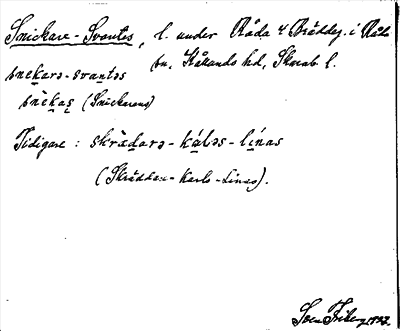 Snickare-Svantes, l. under Råda 4 Bräddeg. i Råda
sn., Kållands hd, Skarab. l.
snekarə-svantəs
snekas (Snickarens)
Tidigare: skrädarə-káləs-línas
(Skräddare-Karls-Linas).
Sven 1932.